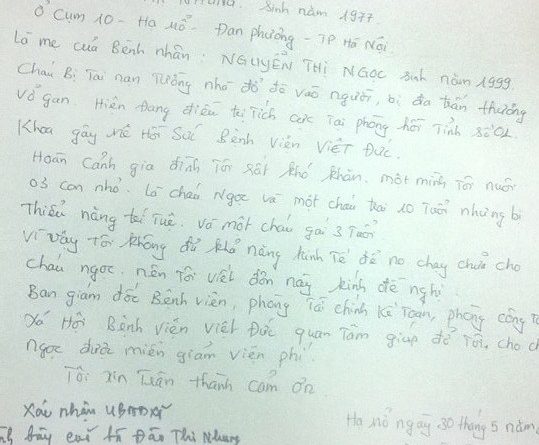 sinh năm 1977.
Ở Cụm 10 - Hạ Mỗ - Đan phượng - TP Hà Nội.
Là mẹ của Bệnh nhân : NGUYỄN THỊ NGỌC sinh năm 1999.
Cháu Bị Tai nạn Tường nhà đổ đè vào người, bị đa trấn thương
vỡ gan. Hiện đang điều trị Tích cực Tại phòng hồi Tỉnh số 02.
Khoa gây mê Hồi Sức Bệnh viện VIỆT ĐỨC.
Hoàn Cảnh gia đình Tôi rất khó khăn. một mình Tôi nuôi
03 con nhỏ. Là cháu Ngọc và một cháu trai 10 Tuổi nhưng bị
Thiểu năng trí Tuệ. và một cháu gái 3 Tuổi
vì vậy Tôi không đủ khả năng kinh Tế để lo chạy chữa cho
cháu ngọc. nên Tôi viết đơn này kính đề nghị
Ban giám đốc Bệnh viện, phòng Tài chính kế Toán, phòng công
xá Hội Bệnh viện việt Đức quan Tâm giúp đỡ Tôi, cho
ngọc được miễn giảm viện phí.
Tôi xin Trân thành cảm ơn
Xác nhận UBND xã
Hạ mỗ ngày 30 tháng 5 năm
bày của bà Đào Thị Nhung